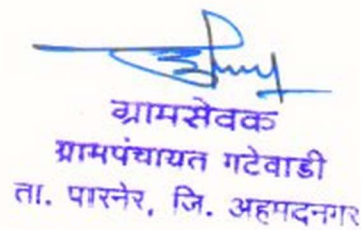 ग्रामसेवक
ग्रामपंचायत गटेवाडी
ता. पारनेर, जि. अहमदनगर